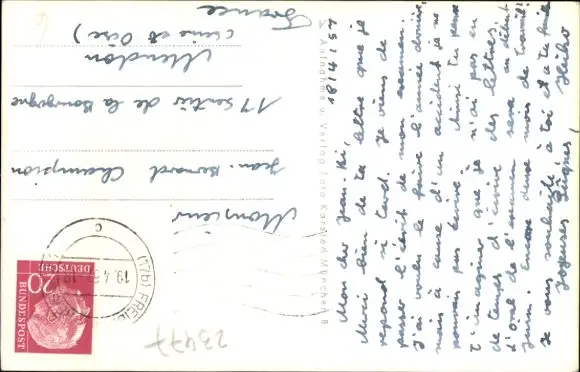 18/4/57
Mon cher Jean-Ni,
Merci bien de ta lettre que je
répond si tard. Je viens de
passer l'écrit de mon examen.
J'ai voulu le faire l'année dernière
mais à cause d'un accident je ne
pouvais pas écrire. Ainsi tu peux
t'imaginer que je n'ai pas eu
de temps d'écrire des lettres.
L'oral de l'examen sera au début
juin. Encore deux mois de travail!
Je vous souhaite à toi et à ta famille
Joyeuses Pâques!
Heiko
Aufnahme u. Verlag Foto München 8
Monsieur
Jean-Bernard Champion
17 sentier de la Bourgogne
Meudon
(Seine et Oise)
France
(17b) FREIB
19.4.
c
20
DEUTSCHE
BUNDESPOST
23477